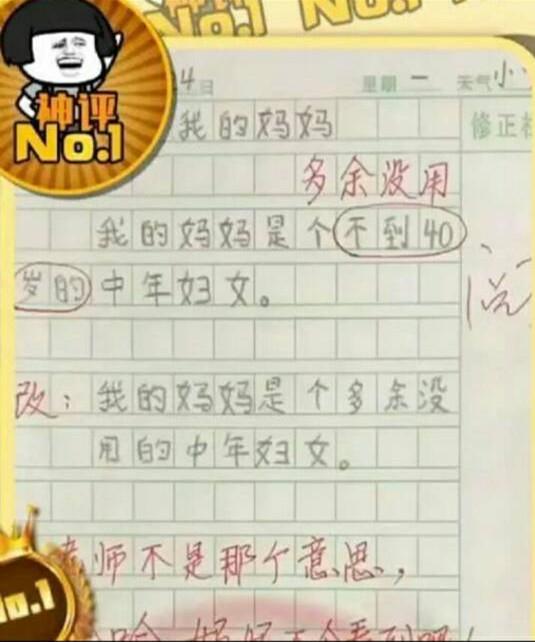 No.1
No.1
神评
No.1
4日 星期一 天气小
我的妈妈
修正
多余没用
我的妈妈是个不到40
岁的中年妇女。
改：我的妈妈是个多余没
用的中年妇女。
老师不是那个意思，
No.1